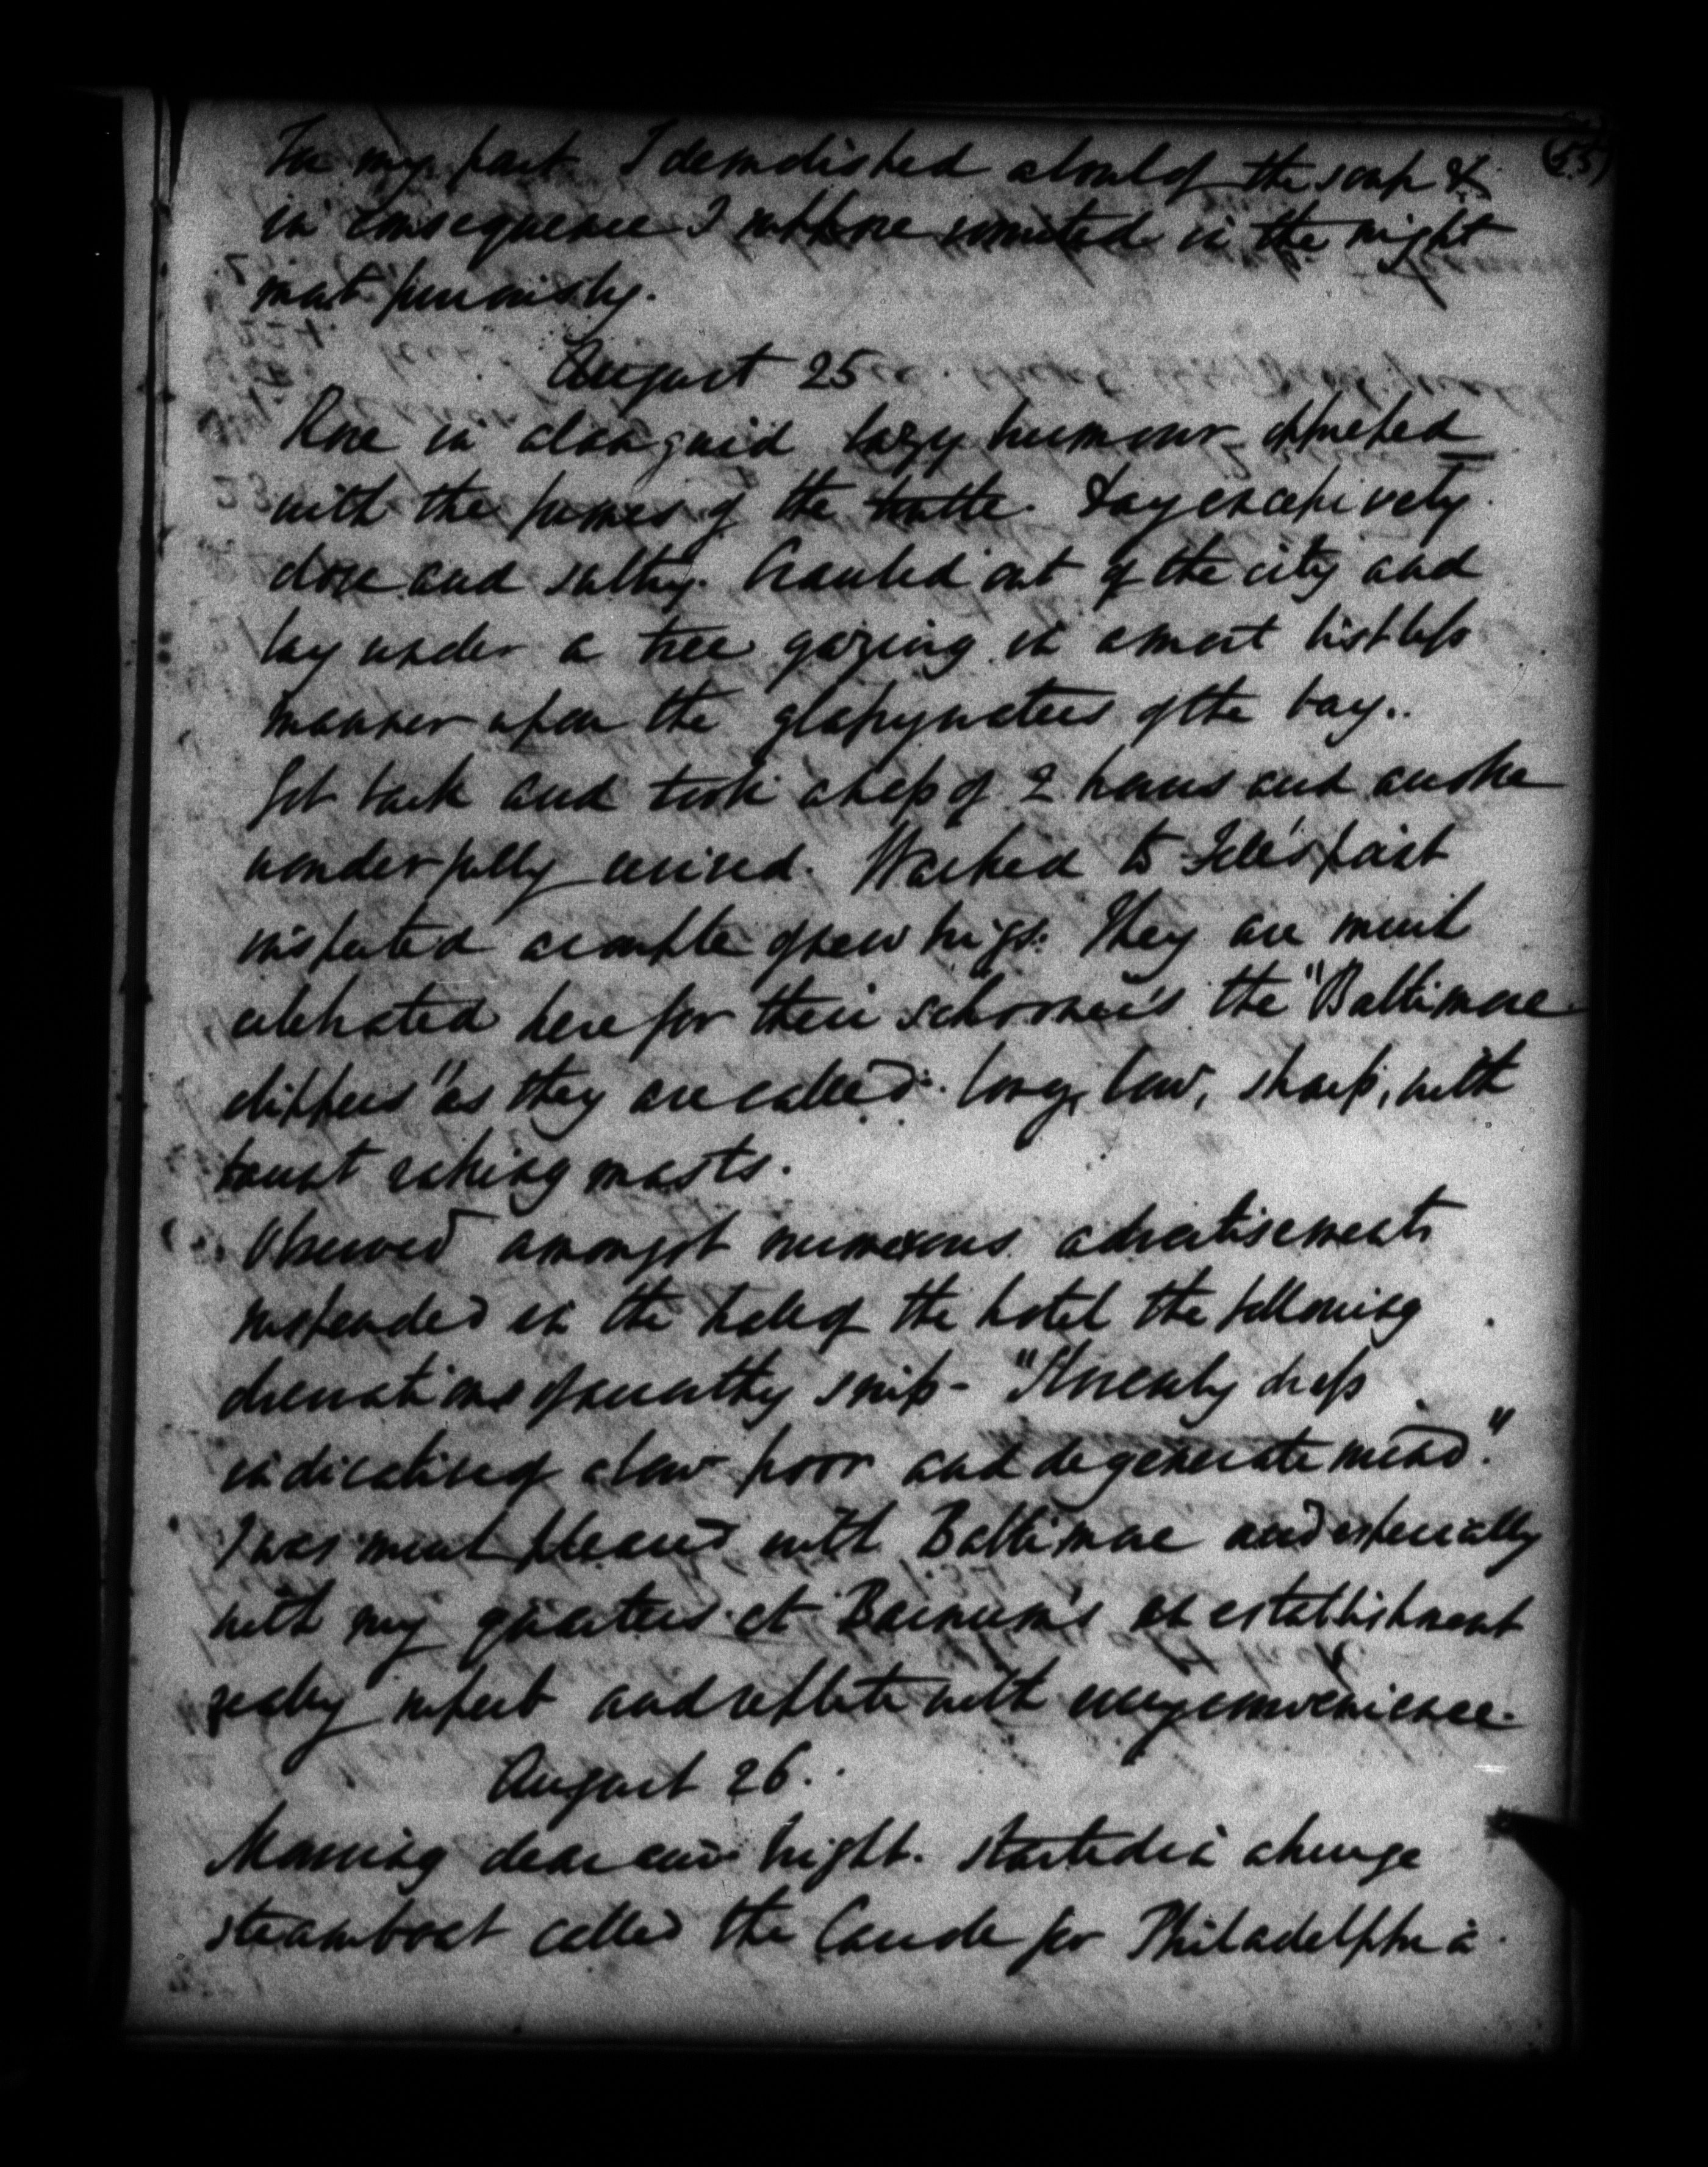 (55)
For my part I demolished a bowl of the soup &
in consequence I suppose vomited in the night
most furiously.
August 25
Rose in a languid lazy humour oppressed
with the fumes of the turtle. Day excessively
close and sultry. Crawled out of the city and
lay under a tree gazing in a most listless
manner upon the glassy waters of the bay.
Got back and took a sleep of 2 hours and awoke
wonderfully revived. Walked to Fell's point
inspected a couple of new brigs. They are much
celebrated here for their schooners the "Baltimore
clippers" as they are called. long, low, sharp, with
taunt raking masts.
Observed amongst numerous advertisements
suspended in the hall of the hotel the following
observations of a worthy snip - "Slovenly dress
indicative of a low poor and degenerate mind."
I was much pleased with Baltimore and especially
with my quarters at Barnum's an establishment
really superb and replete with every convenience.
August 26.
Morning clear and bright. Started in a huge
steamboat called the for Philadelphia